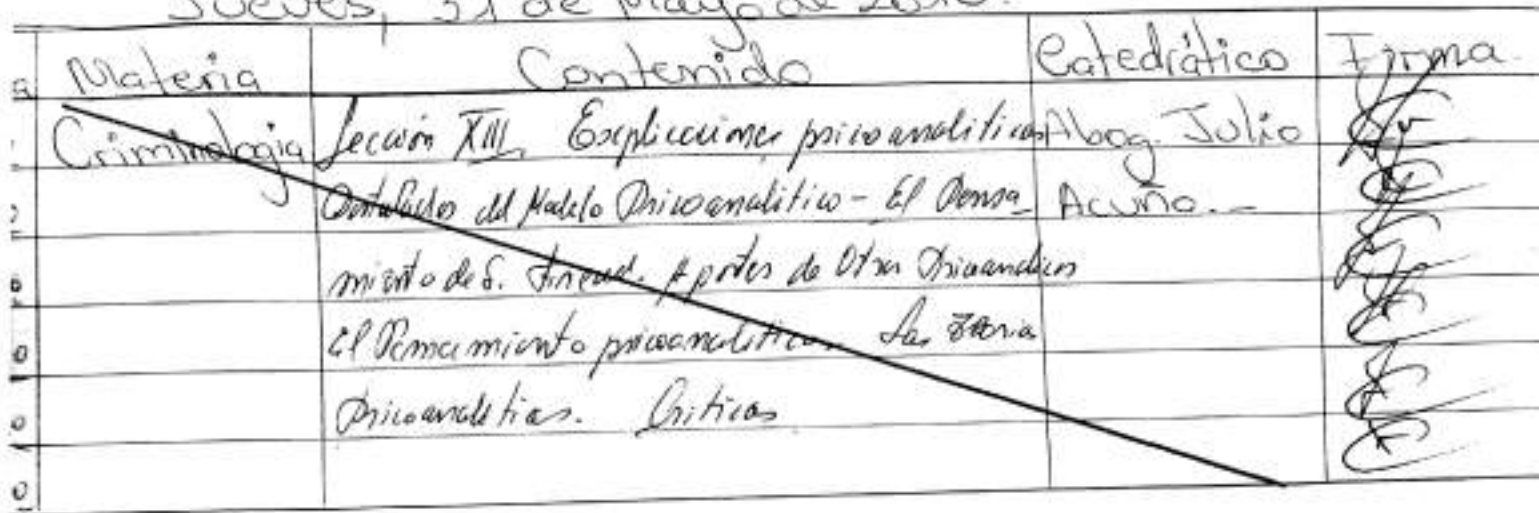 Jueves, 31 de Mayo de 2018.
Materia Contenido Catedrático Firma
Criminologia Lección XIII. Explicaciones psicoanaliticas Abog. Julio
Postulados del Modelo Psicoanalitico - El Pensa- Acuña.-
miento de S. Freud. Aportes de Otros Psicoanalicos
El Pensamiento psicoanalitico. Las Teoria
Psicoanaliticas. Criticas